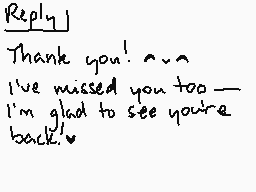 Reply
Thank you! ^v^
I've missed you too —
I'm glad to see you're
back! ♥